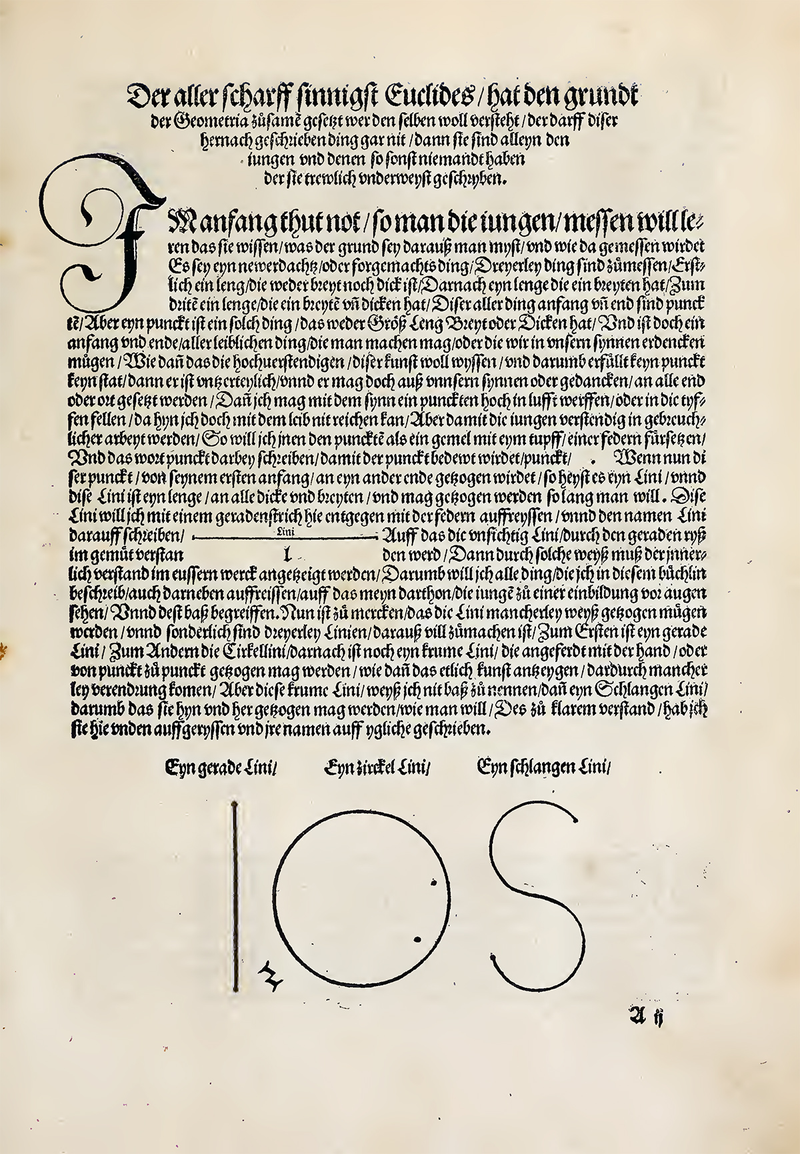 Der aller scharff sinnigst Euclides / hat den grundt
der Geometria zůsamē gesetzt wer den selben woll versteht / der darff diser
hernach geschrieben ding gar nit / dann sie sind alleyn den
iungen vnd denen so sonst niemandt haben
der sie trewlich vnderweyst geschryben.
IM anfang thut not / so man die iungen / messen will le⸗
ren das sie wissen / was der grund sey darauß man myst / vnd wie da gemessen wirdet
Es sey eyn newerdachts / oder forgemachts ding / Dreyerley ding sind zůmessen / Erst⸗
lich ein leng / die weder breyt noch dick ist / Darnach eyn lenge die ein breyten hat / Zum
dritē ein lenge / die ein breytē vñ dicken hat / Diser aller ding anfang vñ end sind punck
tē / Aber eyn punckt ist ein solch ding / das weder Größ Leng Breyt oder Dicken hat / Vnd ist doch ein
anfang vnd ende / aller leiblichen ding / die man machen mag / oder die wir in vnsern synnen erdencken
mügen / Wie dañ das die hochuerstendigen / diser kunst woll wyssen / vnd darumb erfüllt keyn punckt
keyn stat / dann er ist vnzerteylich / vnnd er mag doch auß vnnsern synnen oder gedancken / an alle end
oder ort gesetzt werden / Dañ jch mag mit dem synn ein puncktten hoch in lufft werffen / oder in die tyf⸗
fen fellen / da hyn jch doch mit dem leib nit reichen kan / Aber damit die iungen verstendig in gebreuch⸗
licher arbeyt werden / So will jch jnen den puncktē als ein gemel mit eym tupff / einer federn fürsetzen /
Vnd das wort punckt darbey schreiben / damit der punckt bedewt wirdet / punckt / . Wenn nun di
ser punckt / von seynem ersten anfang / an eyn ander ende gezogen wirdet / so heyst es eyn Lini / vnnd
dise Lini ist eyn lenge / an alle dicke vnd breyten / vnd mag gezogen werden so lang man will. Dise
Lini will jch mit einem geradenstrich hie entgegen mit der federn auffreyssen / vnnd den namen Lini
darauff schreiben / Lini Auff das die vnsichtig Lini / durch den geraden ryß
im gemüt verstan 1. den werd / Dann durch solche weyß muß der jnner⸗
lich verstand im eussern werck angezeigt werden / Darumb will jch alle ding / die jch in diesem büchlin
beschreib / auch darneben auffreissen / auff das meyn darthon / die iungē zů einer einbildung vor augen
sehen / Vnnd dest baß begreiffen. Nun ist zů mercken / das die Lini mancherley weyß gezogen mügen
werden / vnnd sonderlich sind dreyerley Linien / darauß vill zůmachen ist / Zum Ersten ist eyn gerade
Lini / Zum Andern die Cirkellini / darnach ist noch eyn krume Lini / die angeferd mit der hand / oder
von punckt zů punckt gezogen mag werden / wie dañ das etlich kunst anzeygen / dardurch mancher
ley verendrung komen / Aber diese krume Lini / weyß jch nit baß zů nennen / dañ eyn Schlangen Lini /
darumb das sie hyn vnd her gezogen mag werden / wie man will / Des zů klarem verstand / hab jch
sie hie vnden auffgeryssen vnd jre namen auff ygliche geschrieben.
Eyn gerade Lini /
Eyn zirckel Lini /
Eyn schlangen Lini /
2
A ij